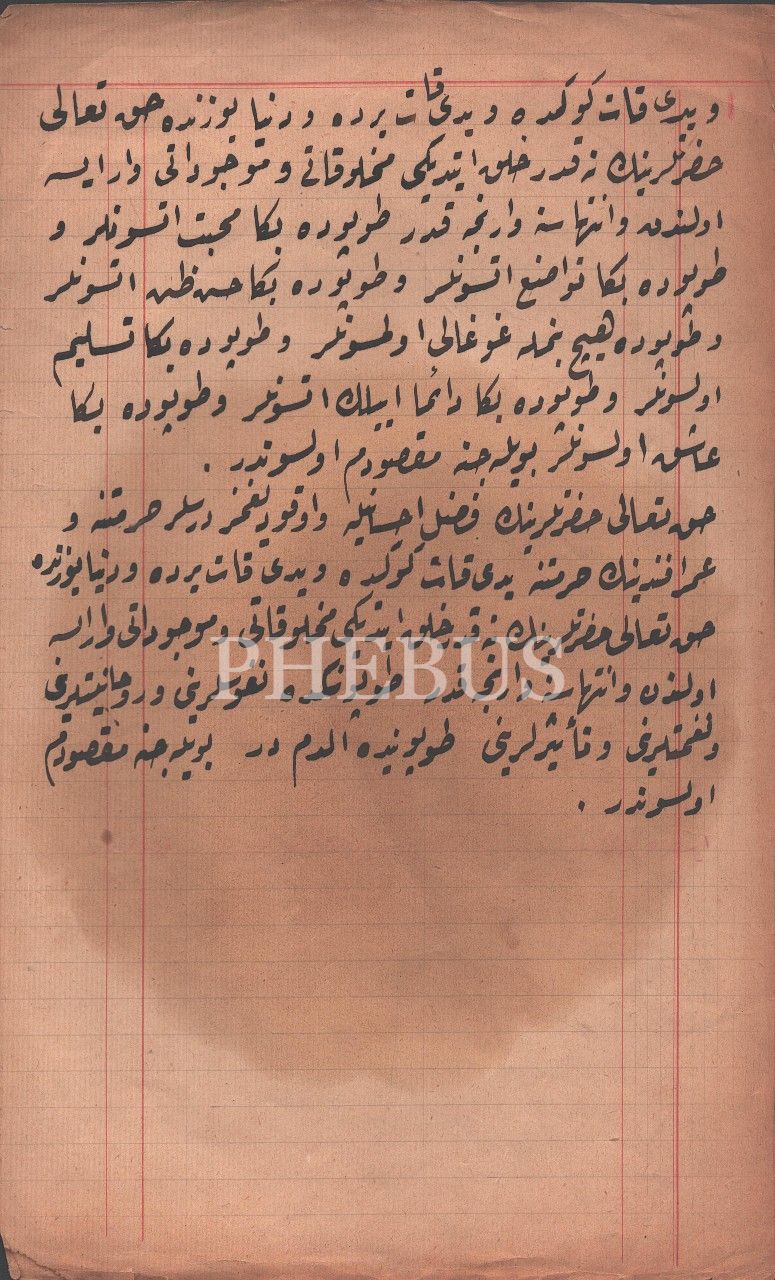 و یدی قات کوکده و یدی قات یرده و دنیا یوزنده حق تعالی
حضرتلرینك نه قدر خلق ایتدیکی مخلوقاتی و موجوداتی وار ایسه
اولندن وانتهاسنه وارنجه قدر طوپوده بکا محبت اتسونلر و
طوپوده بکا تواضع اتسونلر و طوپوده بکا حسن ظن اتسونلر
و طوپوده هیچ بنمله غوغالی اولمسونلر و طوپوده بکا تسلیم
اولسونلر و طوپوده بکا دائما اییلك اتسونلر و طوپوده بکا
عاشق اولسونلر بویله جنه مقصودم اولسوندر .
حق تعالی حضرتلرینك فضل احسانیله واوقودیغمز درسلر حرمتنه و
عمر افندینك حرمتنه یدی قات کوکده و یدی قات یرده و دنیا یوزنده
حق تعالی حضرتلرینك نه قدر خلق ایتدیکی مخلوقاتی و موجوداتی وار ایسه
اولندن وانتهاسنه وارنجه قدر طوپونكده نفوسلرینی و روحانیتلرینی
و نغمتلرینی و تأثیرلرینی طوپونیده الدم در بویله جنه مقصودم
اولسوندر .
PHEBUS